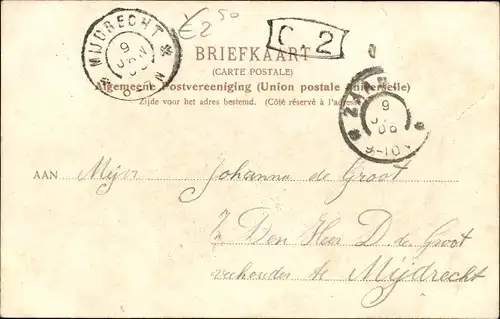 €2⁵⁰
MIJDRECHT
9
JAN
C. 2
BRIEFKAART
(CARTE POSTALE)
Algemeene Postvereeniging (Union postale universelle)
Zijde voor het adres bestemd. (Côté réservé à l'adresse)
9
06
9-10V
AAN Mejr Johanna de Groot
Den Heer D. de Groot
veehouder te Mijdrecht